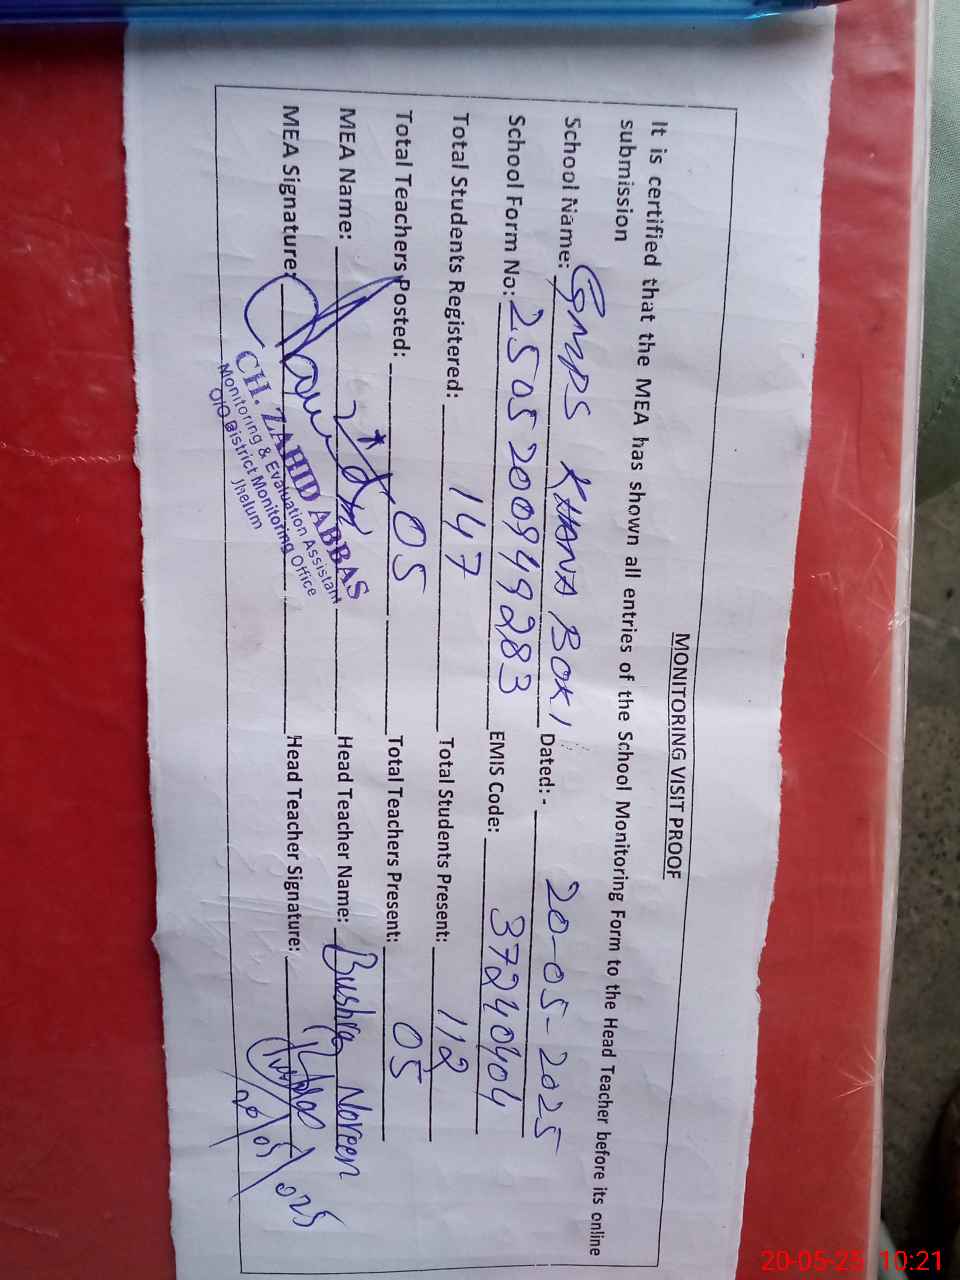 MONITORING VISIT PROOF
It is certified that the MEA has shown all entries of the School Monitoring Form to the Head Teacher before its online
submission
School Name: GMPS KHANA BOKI Dated: - 20-05-2025
School Form No: 25052009499283 EMIS Code: 37240404
Total Students Registered: 147 Total Students Present: 112
Total Teachers Posted: 05 Total Teachers Present: 05
MEA Name: Head Teacher Name: Bushra Noreen
MEA Signature: Head Teacher Signature:
CH. ZAHID ABBAS
Monitoring & Evaluation Assistant
O/O District Monitoring Office
Jhelum
20-05-25 10:21